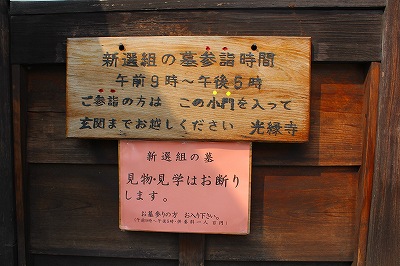 新選組の墓参詣時間
午前9時～午後5時
ご参詣の方は この小門を入って
玄関までお越しください 光縁寺
新選組の墓
見物・見学はお断り
します。
お墓参りの方 お入り下さい。
(午前9時～午後5時・供養料一人百円)